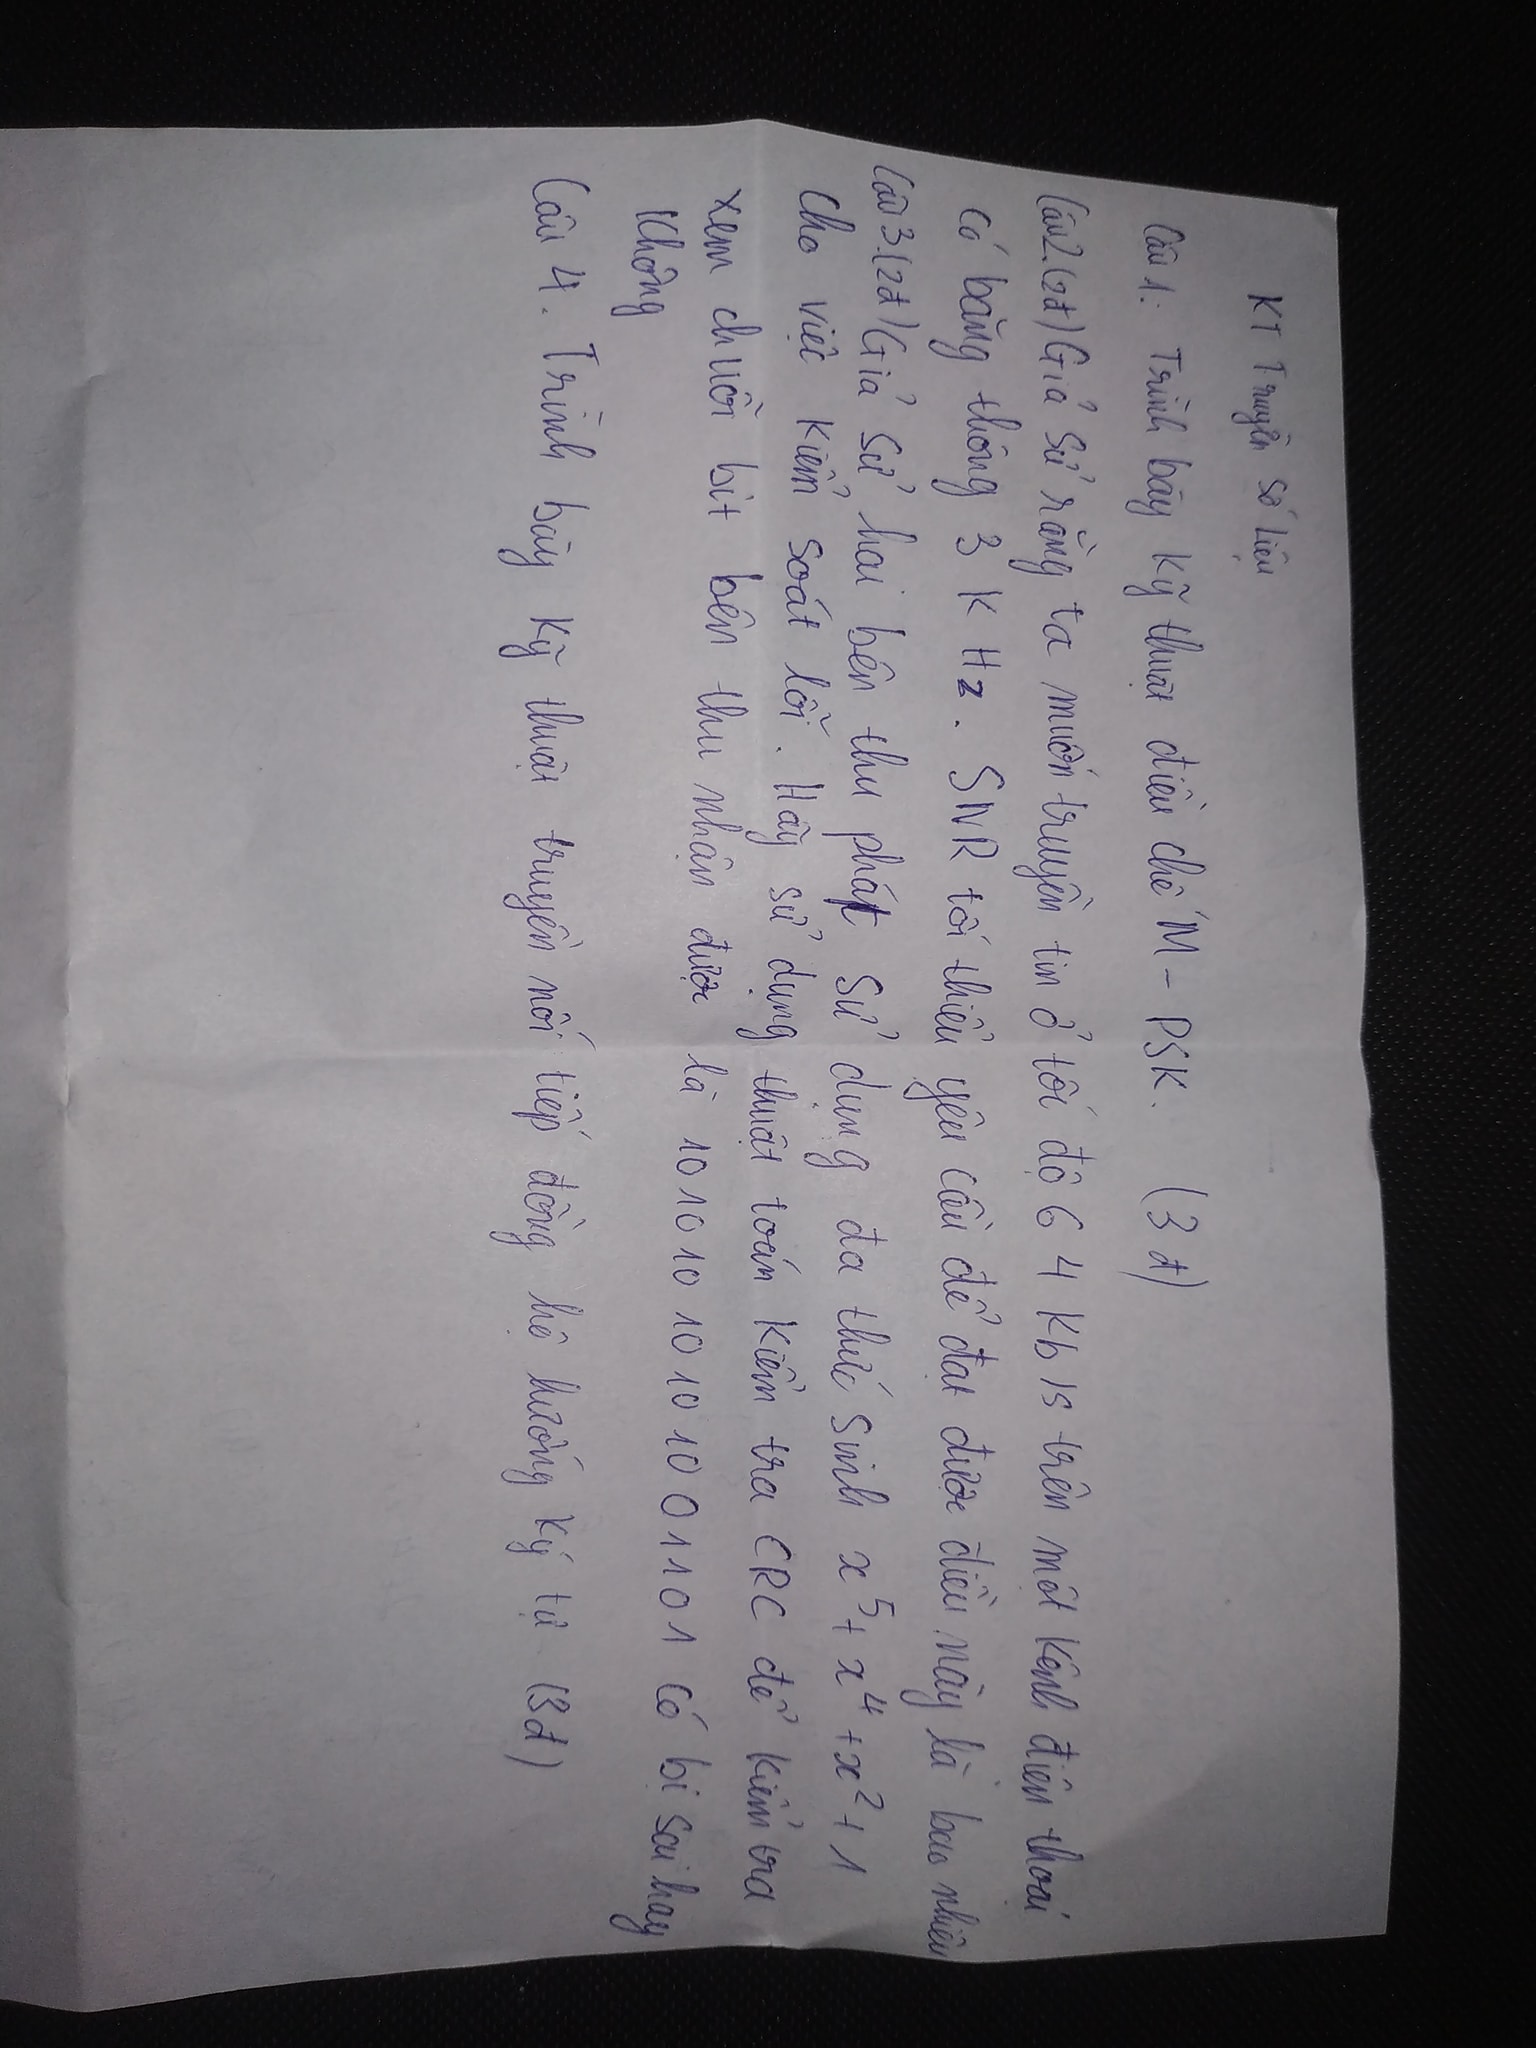 KT Truyền Số Liệu
Câu 1: Trình bày kỹ thuật điều chế M-PSK. (3đ)
Câu 2. (2đ) Giả sử rằng ta muốn truyền tin ở tốc độ 64 Kb/s trên một kênh điện thoại
có băng thông 3 KHz. SNR tối thiểu yêu cầu để đạt được điều này là bao nhiêu
Câu 3. (2đ) Giả sử hai bên thu phát sử dụng đa thức sinh x⁵ + x⁴ + x² + 1
cho việc kiểm soát lỗi. Hãy sử dụng thuật toán kiểm tra CRC để kiểm tra
xem chuỗi bit bên thu nhận được là 10 10 10 10 10 10 10 0 1 1 0 1 có bị sai hay
không
Câu 4. Trình bày kỹ thuật truyền nối tiếp đồng bộ hướng ký tự (3đ)